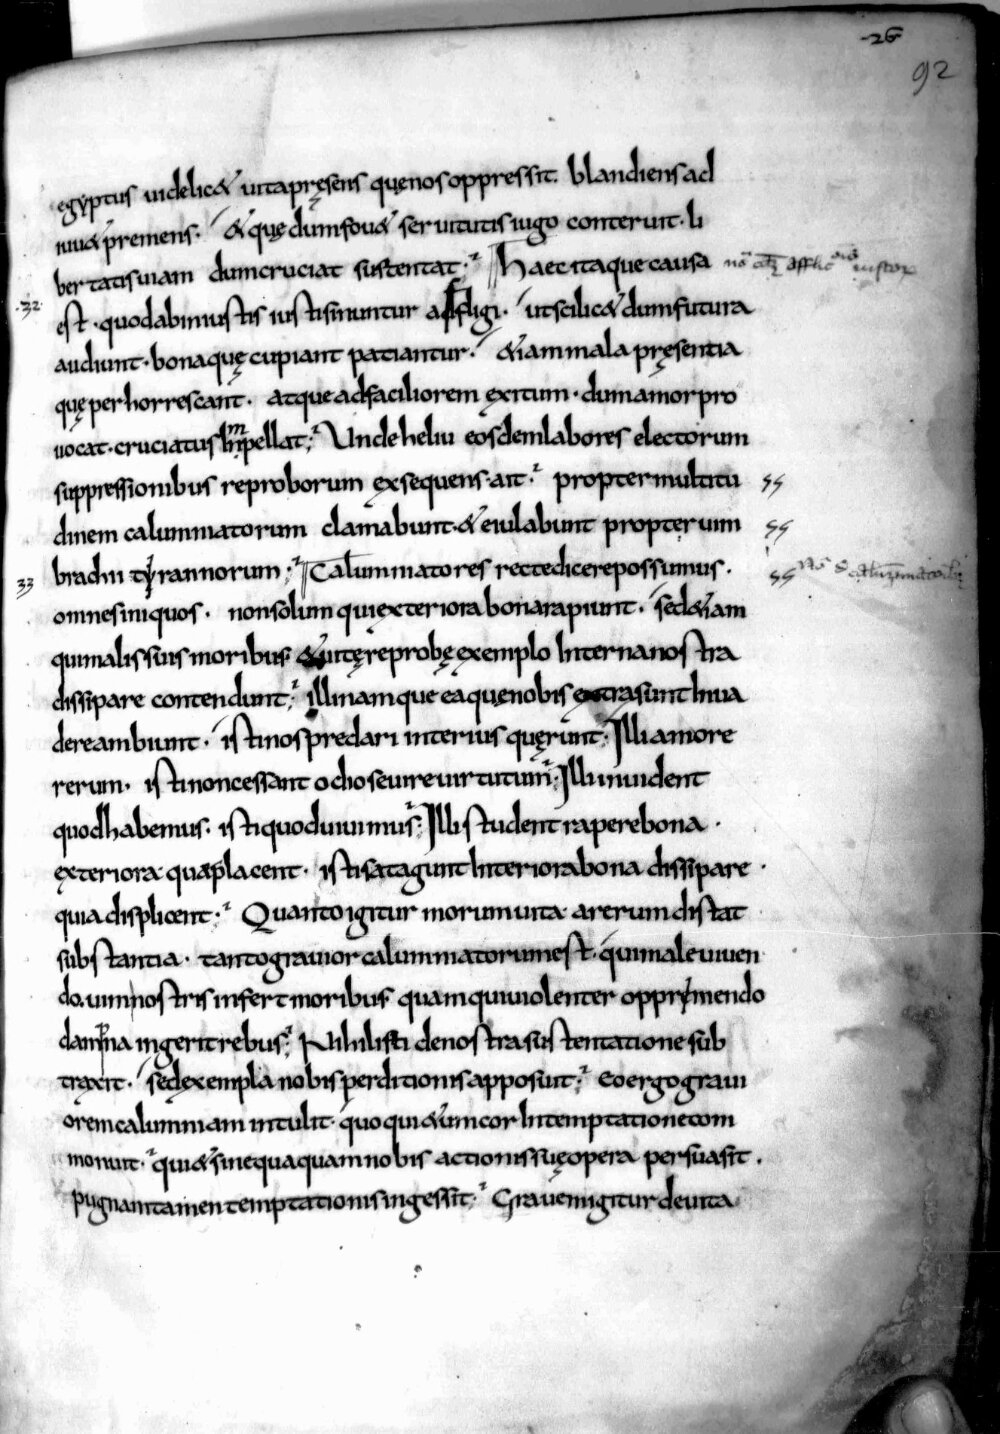 ·26
92
egyptus uidelic& uita pręsens quę nos oppressit. blandiens ad
iuu& premens. & quę dum fou& seruitutis iugo conteruit. li
bertatis uiam dum cruciat sustentat. Haec itaque causa
·32· est. quod ab iniustis iusti sinuntur affligi. ut scilic& dum futura
audiunt. bona quę cupiant patiantur. &iam mala pręsentia
quę perhorrescant. atque ad faciliorem exitum. dum amor pro
uocat. cruciatus Impellat; Unde heliu eosdem labores electorum
suppressionibus reproborum exsequens. ait. propter multitu
dinem calumniatorum clamabunt. & eiulabunt propter uim
33 brachii tyrannorum; Calumniatores recte dicere possumus.
omnes iniquos. non solum qui exteriora bona rapiunt. sed &iam
qui malis suis moribus & uitę reprobę exemplo Interna nostra
dissipare contendunt; illi namque ea quę nobis extra sunt Inua
dere ambiunt. isti nos predari interius quęrunt; Illi amore
rerum. isti non cessant odio seuire uirtutum; Illi inuident
quod habemus. isti quod uiuimus; Illi student rapere bona.
exteriora quae placent. isti satagunt Interiora bona dissipare.
quia displicent; Quanto igitur morum uita a rerum distat
substantia. tanto grauior calumniatorum est. qui male uiuen
do. uim nostris infert moribus quam qui uiolenter opprimendo
damna ingerit rebus; Nihil isti de nostra sustentatione sub
traxit. sed exempla nobis perditionis apposuit; eo ergo graui
orem calumniam intulit. quo qui&um cor In temptatione com
monuit. qui &si nequaquam nobis actionis suę opera persuasit.
pugnam tamen temptationis ingessit; Grauem igitur de uita